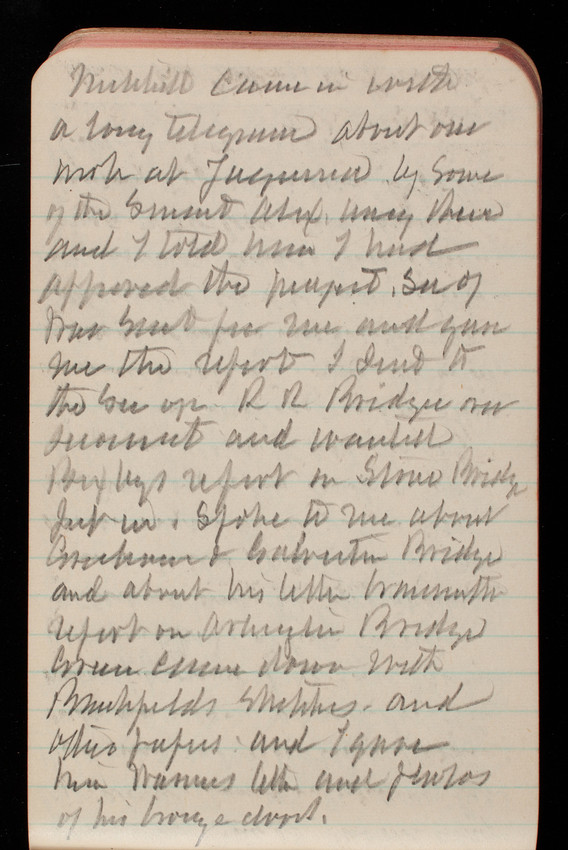 came in with
a long telegram about our
work at by some
of the Smart Alex. away there
and I told him I had
approved the project. Sec of
War sent for me and gave
me the report I sent to
the Sec on R R Bridge over
and wanted
Bixbys report on Stone Bridge
put in. Spoke to me about
& Galveston Bridge
and about his letter
report on Arlington Bridge
Green came down with
sketches and
other papers and I gave
him letter and photos
of his bronze door.